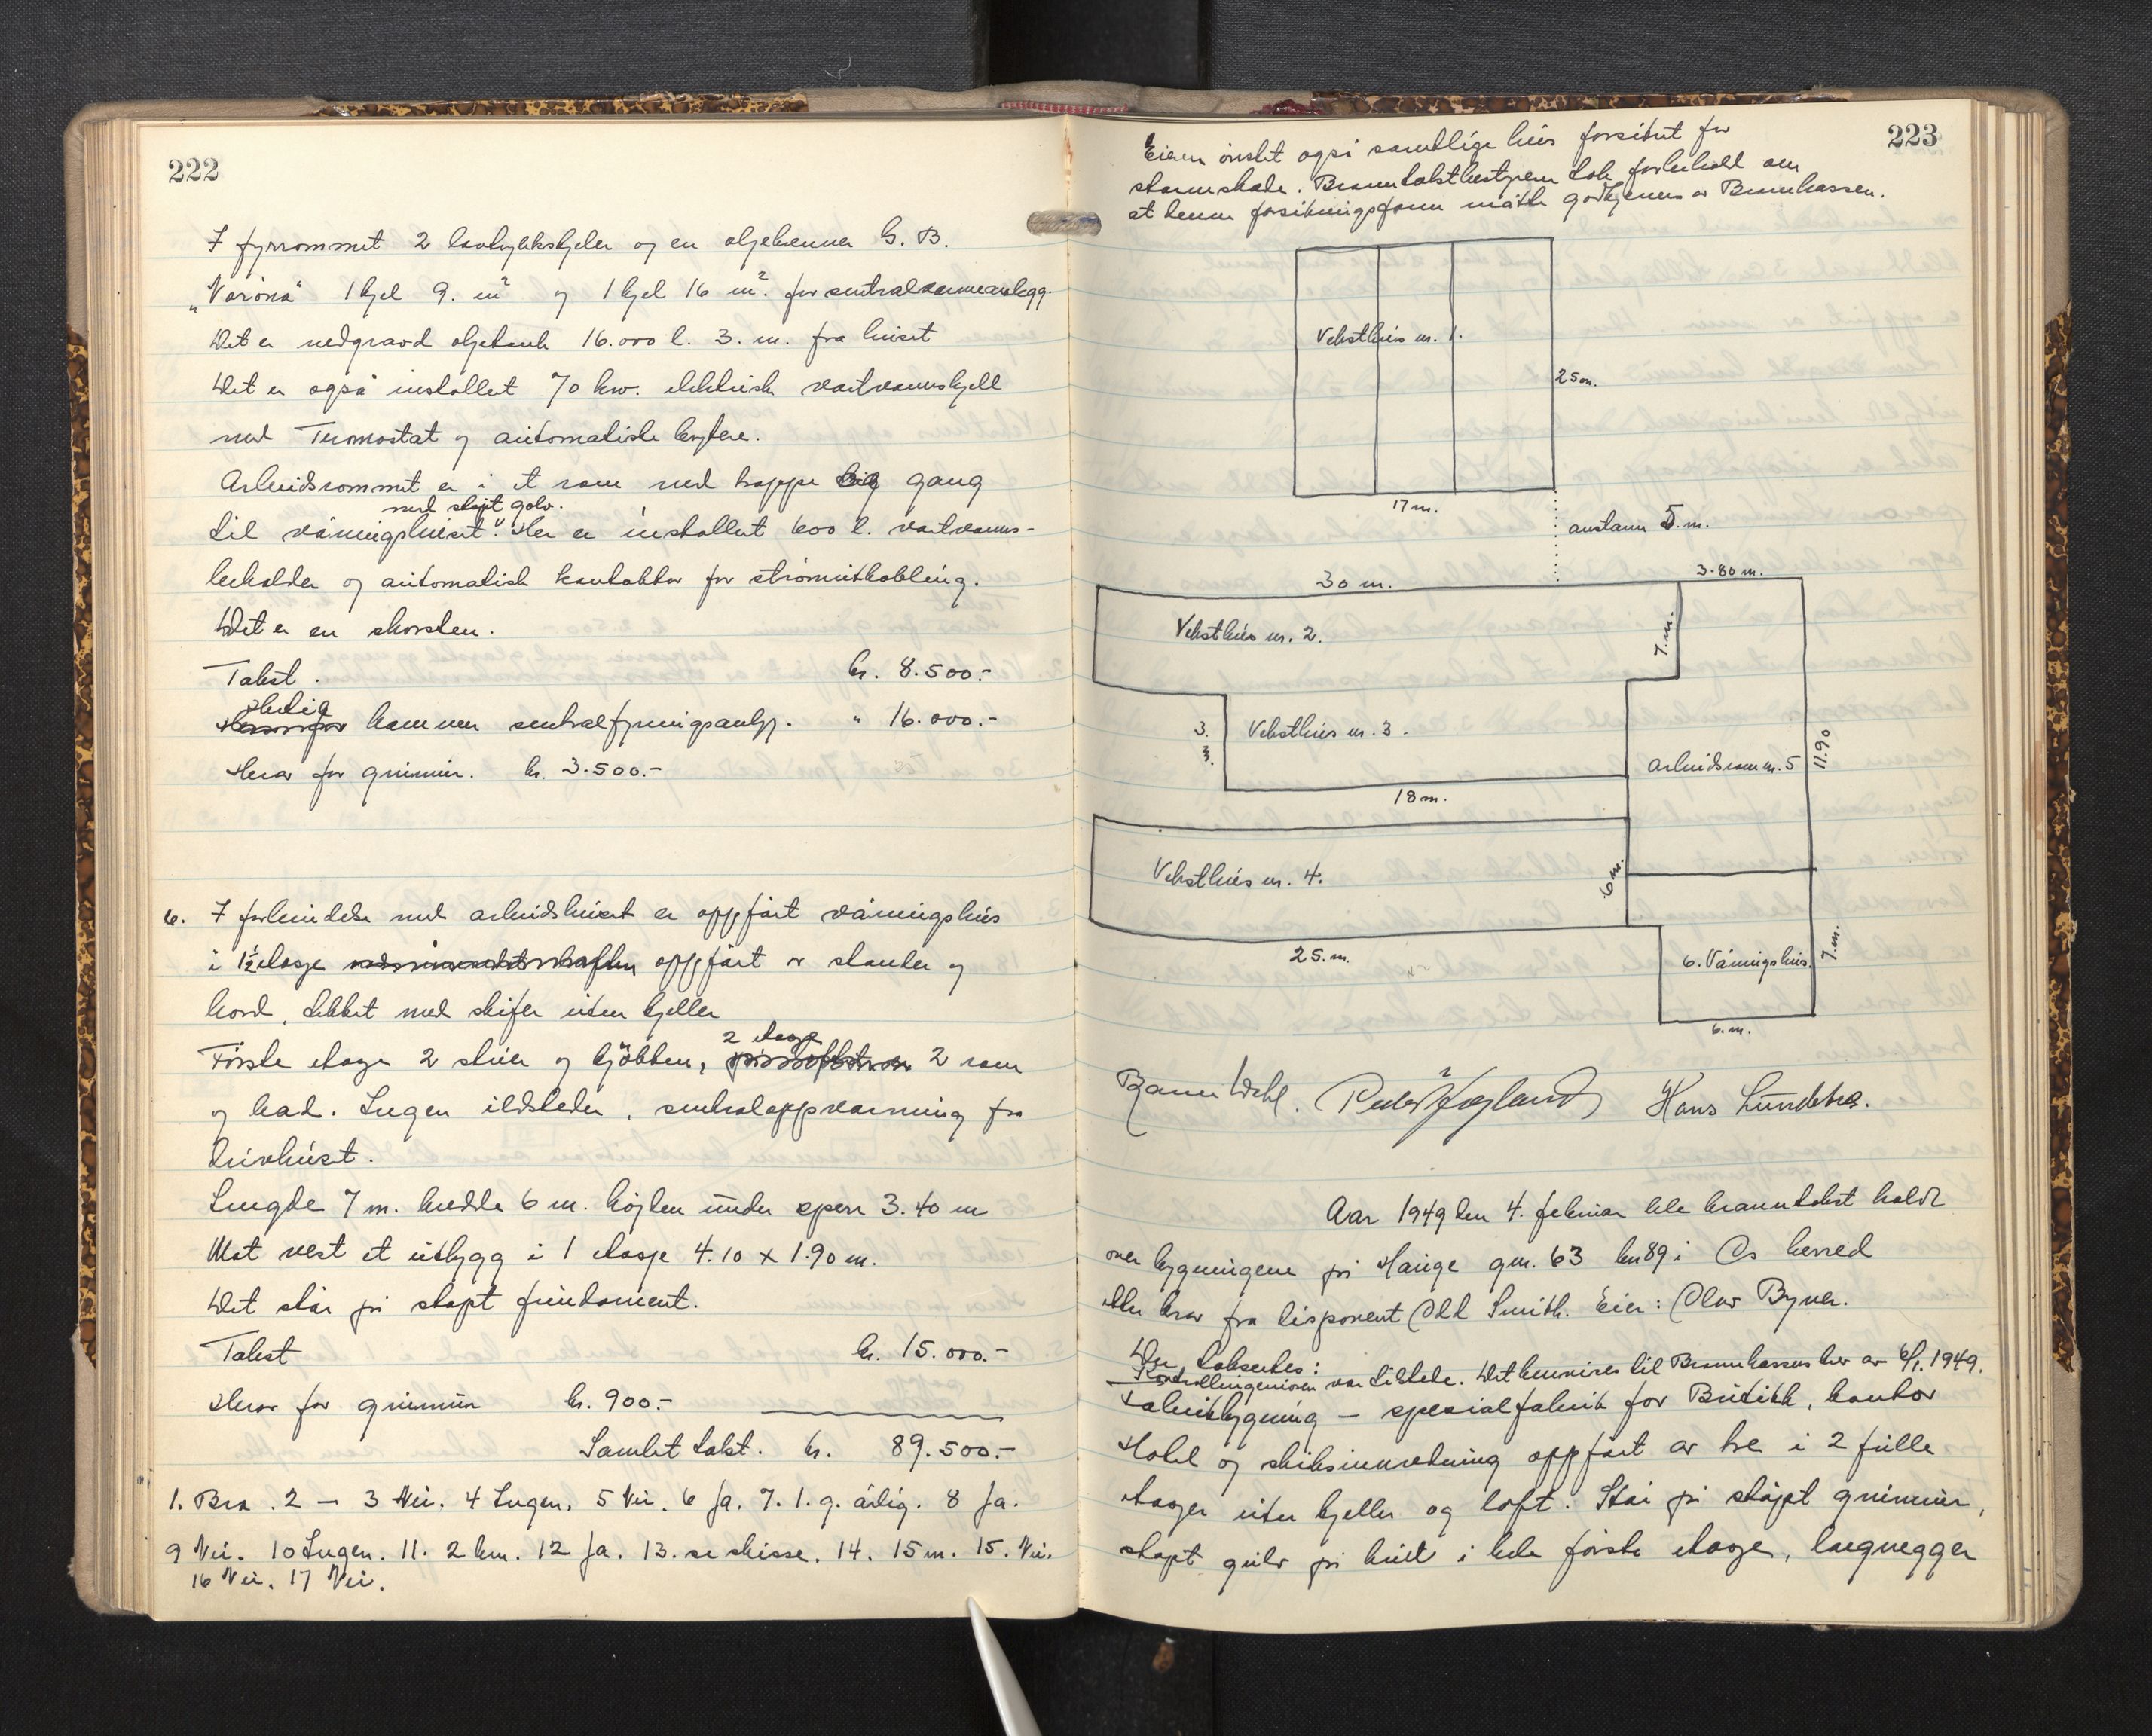 222
I fyrrommet 2 lavtrykkskjeler og en oljebrenner G. B.
"Varöna" 1 kjel 9. m² og 1 kjel 16 m². for sentralvarmeanlegg.
Det er nedgravd oljetank 16.000 l. 3. m. fra huset
Det er også installert 70 kw. elektrisk vartvannskjell
med Termostat og automatiske brytere.
Arbeidsrommet er i et rom med trappe gang
med støpt golv.
til våningshuset. Her er installert 600 l. vartvanns-
beholder og automatisk kontaktor for strömutkobling.
Det er en skorsten.
Takst. kr. 8.500.-
Herlig kommer sentralfyringsanlegg. " 16.000.-
Herav for grunmur. kr. 3.500.-
6. I forbindelse med arbeidshuset er oppført våningshus
i 1½ etasje oppført av stander og
bord, tekket med skifer uten kjeller
Förste etage 2 stuer og kjökken, 2 etage 2 rom
og bad. Ingen ildsteder, sentraloppvarming fra
drivhuset.
Lengde 7 m. bredde 6 m. højden under sperr 3.40 m
Mot vest et utbygg i 1 etasje 4.10 x 1.90 m.
Det står på støpt fundament.
Takst kr. 15.000.-
Herav for grunmur kr. 900.-
Samlet takst. kr. 89.500.-
1. Bra. 2 — 3 Nei. 4 Ingen. 5 Nei. 6 Ja. 7. 1. g. årlig. 8 Ja.
9 Nei. 10 Ingen. 11. 2 km. 12 Ja. 13. se skisse. 14. 15 m. 15. Nei.
16 Nei. 17 Nei.
223
Eieren ønsket også samtlige hus forsikret for
stormskade. Branntakstbestyreren tok forbehold om
at denne forsikringsform måtte godkjennes av Brannkassen.
Veksthus nr. 1.
25 m.
17 m.
avstann 5. m.
30 m.
3.80 m.
Veksthus nr. 2.
7. m.
3. m.
Veksthus nr. 3.
Arbeidsrom nr. 5
11.90
18 m.
Veksthus nr. 4.
6 m.
25. m.
6. Våningshus.
7. m.
6. m.
Hans Lundetræ.
Aar 1949 den 4. februar ble branntakst holdt
over bygningene på Hauge gnr. 63 bnr 89 i Os herred
etter krav fra disponent Odd Smith. Eier: Olav Byner.
Der takseres:
Kontrollingeniören var tilstede. Det henvises til Brannkassens brev av 6/1. 1949.
Fabrikbygning — spesialfabrik for Butikk, kontor
Hotel og skibsinnredning oppført av tre i 2 fulle
etasjer uten kjeller og loft. Står på støpt grunmur,
støpt gulv på kult i hele første etasje, langvegger